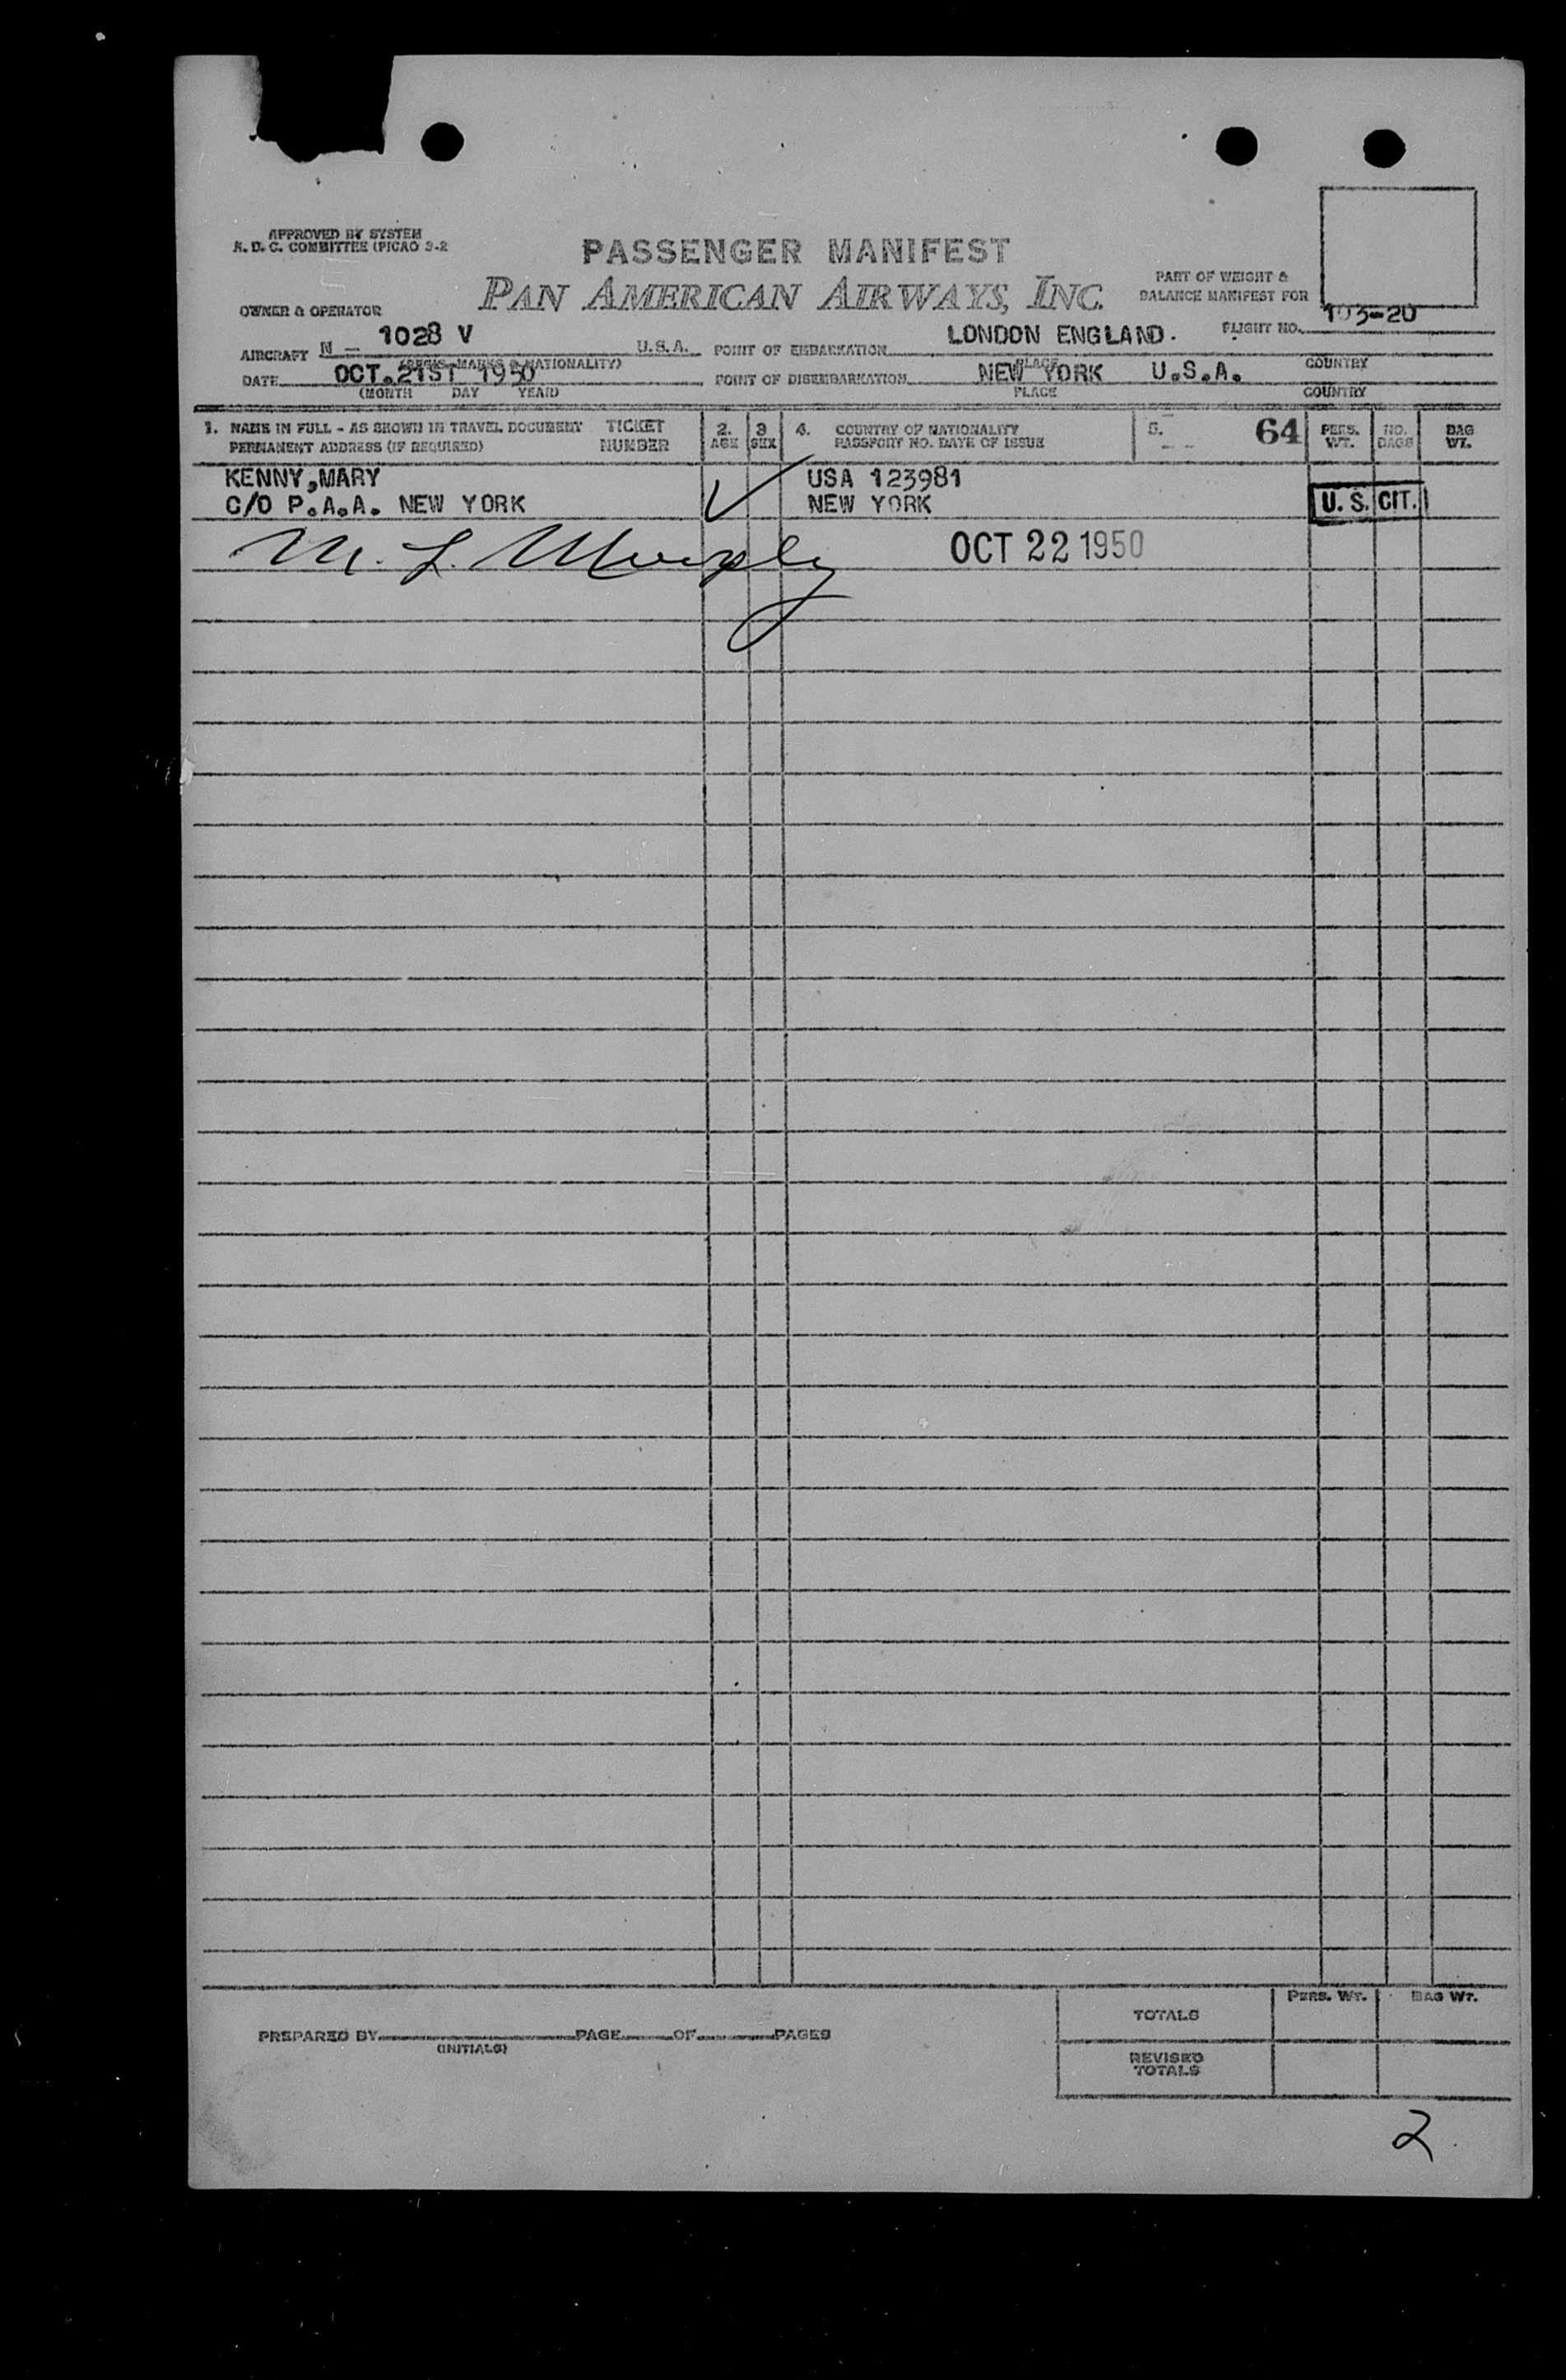 APPROVED BY SYSTEM
R. D. C. COMMITTEE (PICAO 3-2
PASSENGER MANIFEST
PAN AMERICAN AIRWAYS, INC.
PART OF WEIGHT &
BALANCE MANIFEST FOR
OWNER & OPERATOR
AIRCRAFT N - 1028 V U.S.A. POINT OF EMBARKATION LONDON ENGLAND. FLIGHT NO. 103-20
(REGIS. MARKS & NATIONALITY) PLACE COUNTRY
DATE OCT.21ST 1950 POINT OF DISEMBARKATION NEW YORK U.S.A.
(MONTH DAY YEAR) PLACE COUNTRY
1. NAME IN FULL - AS SHOWN IN TRAVEL DOCUMENT TICKET 2. 3 4. COUNTRY OF NATIONALITY 5. 64 PERS. NO. BAG
PERMANENT ADDRESS (IF REQUIRED) NUMBER AGE SEX PASSPORT NO. DATE OF ISSUE WT. BAGS WT.
KENNY,MARY USA 123981
C/O P.A.A. NEW YORK NEW YORK U. S. CIT.
M. L. Murphy OCT 22 1950
PERS. WT. BAG WT.
TOTALS
PREPARED BY PAGE OF PAGES
(INITIALS)
REVISED
TOTALS
2